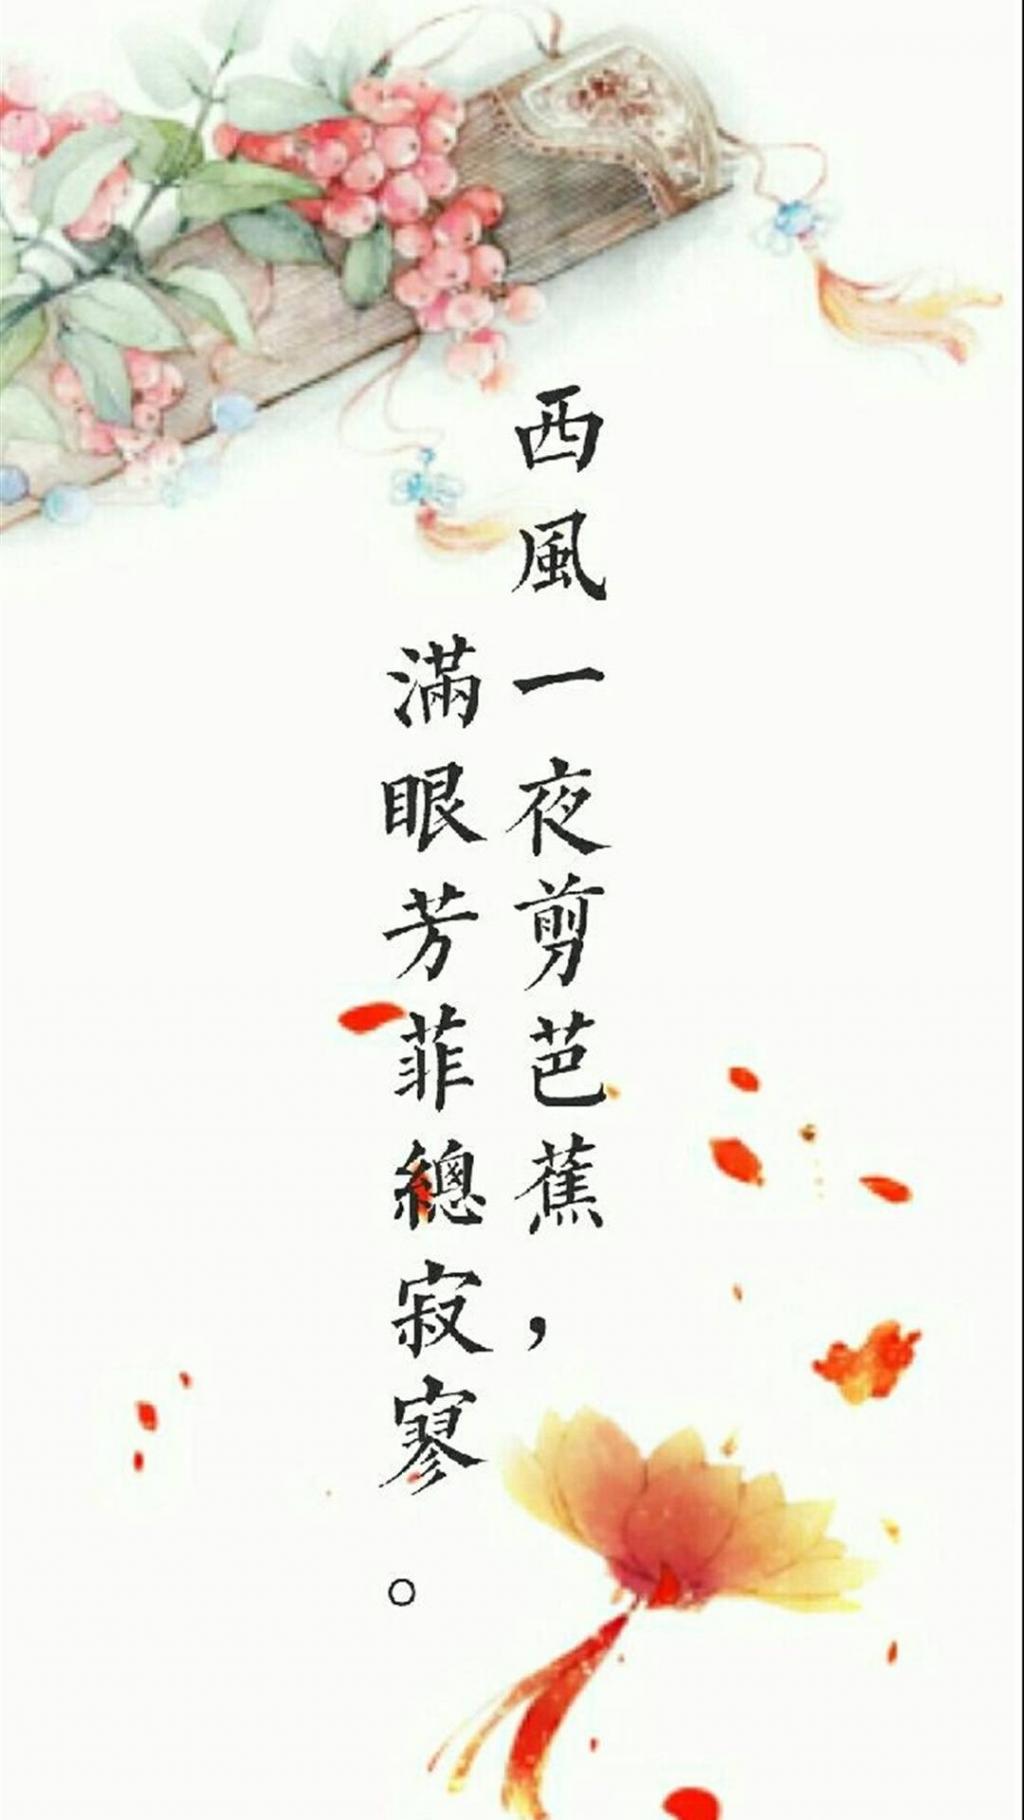 西風一夜剪芭蕉，
滿眼芳菲總寂寥。